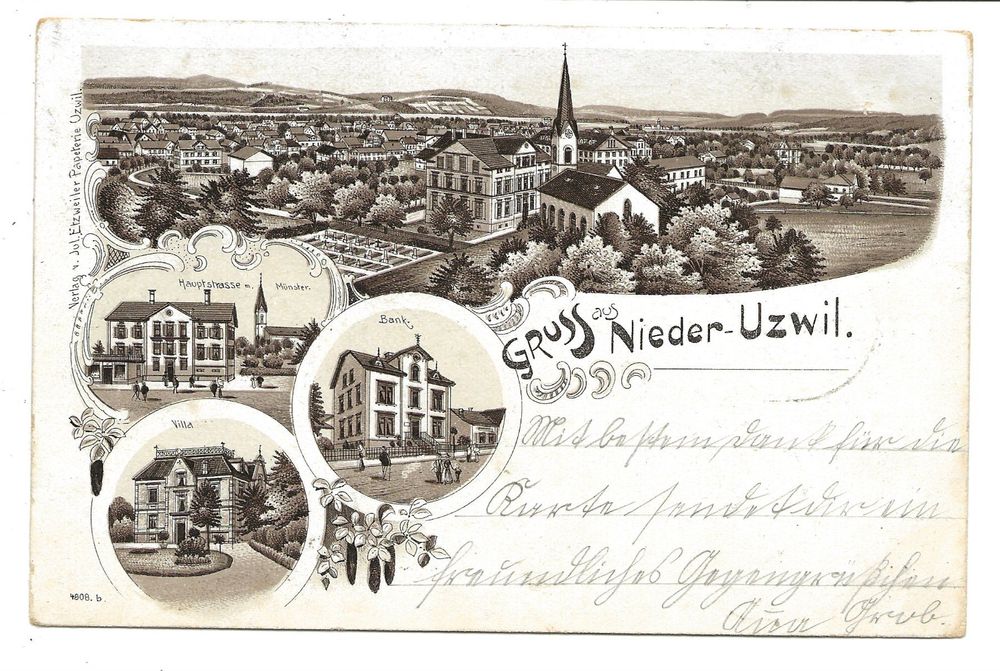 Verlag v. Jul. Etzweiler Papeterie Uzwil.
Hauptstrasse m. Münster.
Bank.
Villa
Gruss aus Nieder-Uzwil.
Mit bestem Dank für die
Karte sendet dir ein
freundliches Gegengrüßchen
Grob.
4908. b.